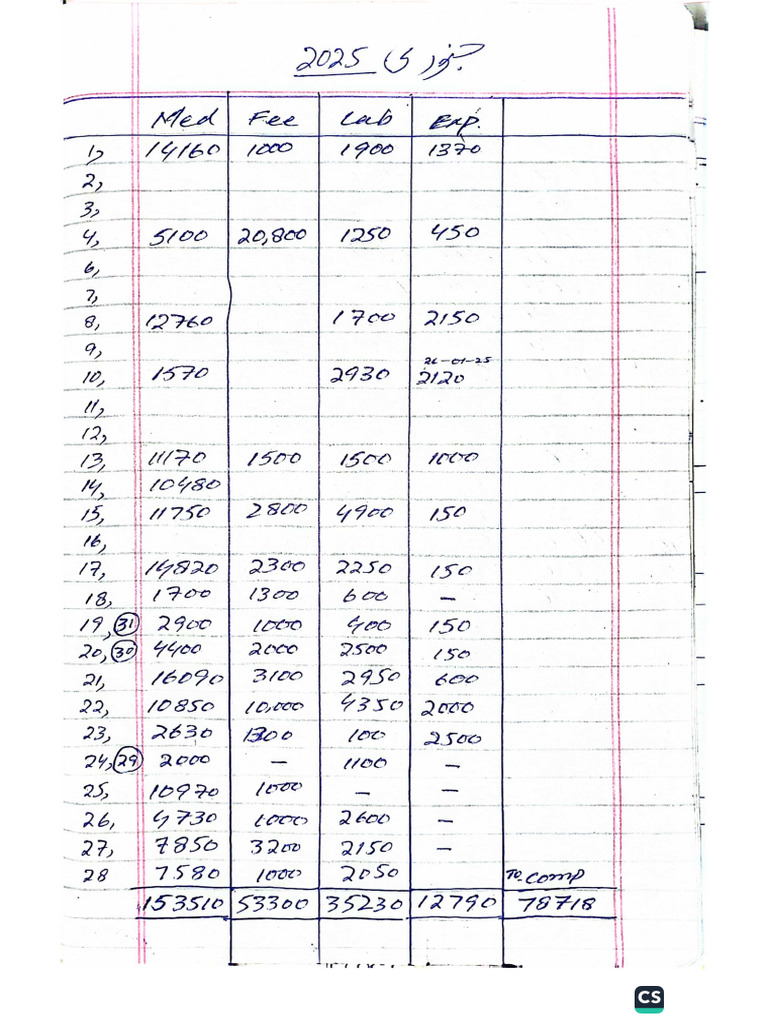 جنوری 2025
Med Fee Lab Exp.
1, 14160 1000 1900 1370
2,
3,
4, 5100 20,800 1250 450
6,
7,
8, 12760 1700 2150
9,
26-01-25
10, 1570 2930 2120
11,
12,
13, 11170 1500 1500 1000
14, 10480
15, 11750 2800 4900 150
16,
17, 14820 2300 2250 150
18, 1700 1300 600 –
19, 31 2900 1000 400 150
20, 30 4400 2000 2500 150
21, 16090 3100 2950 600
22, 10850 10,000 4350 2000
23, 2630 1300 100 2500
24, 29 2000 – 1100 –
25, 10970 1000 – –
26, 4730 1000 2600 –
27, 7850 3200 2150 –
28 7580 1000 2050 To comp
153510 53300 35230 12790 78718
CS